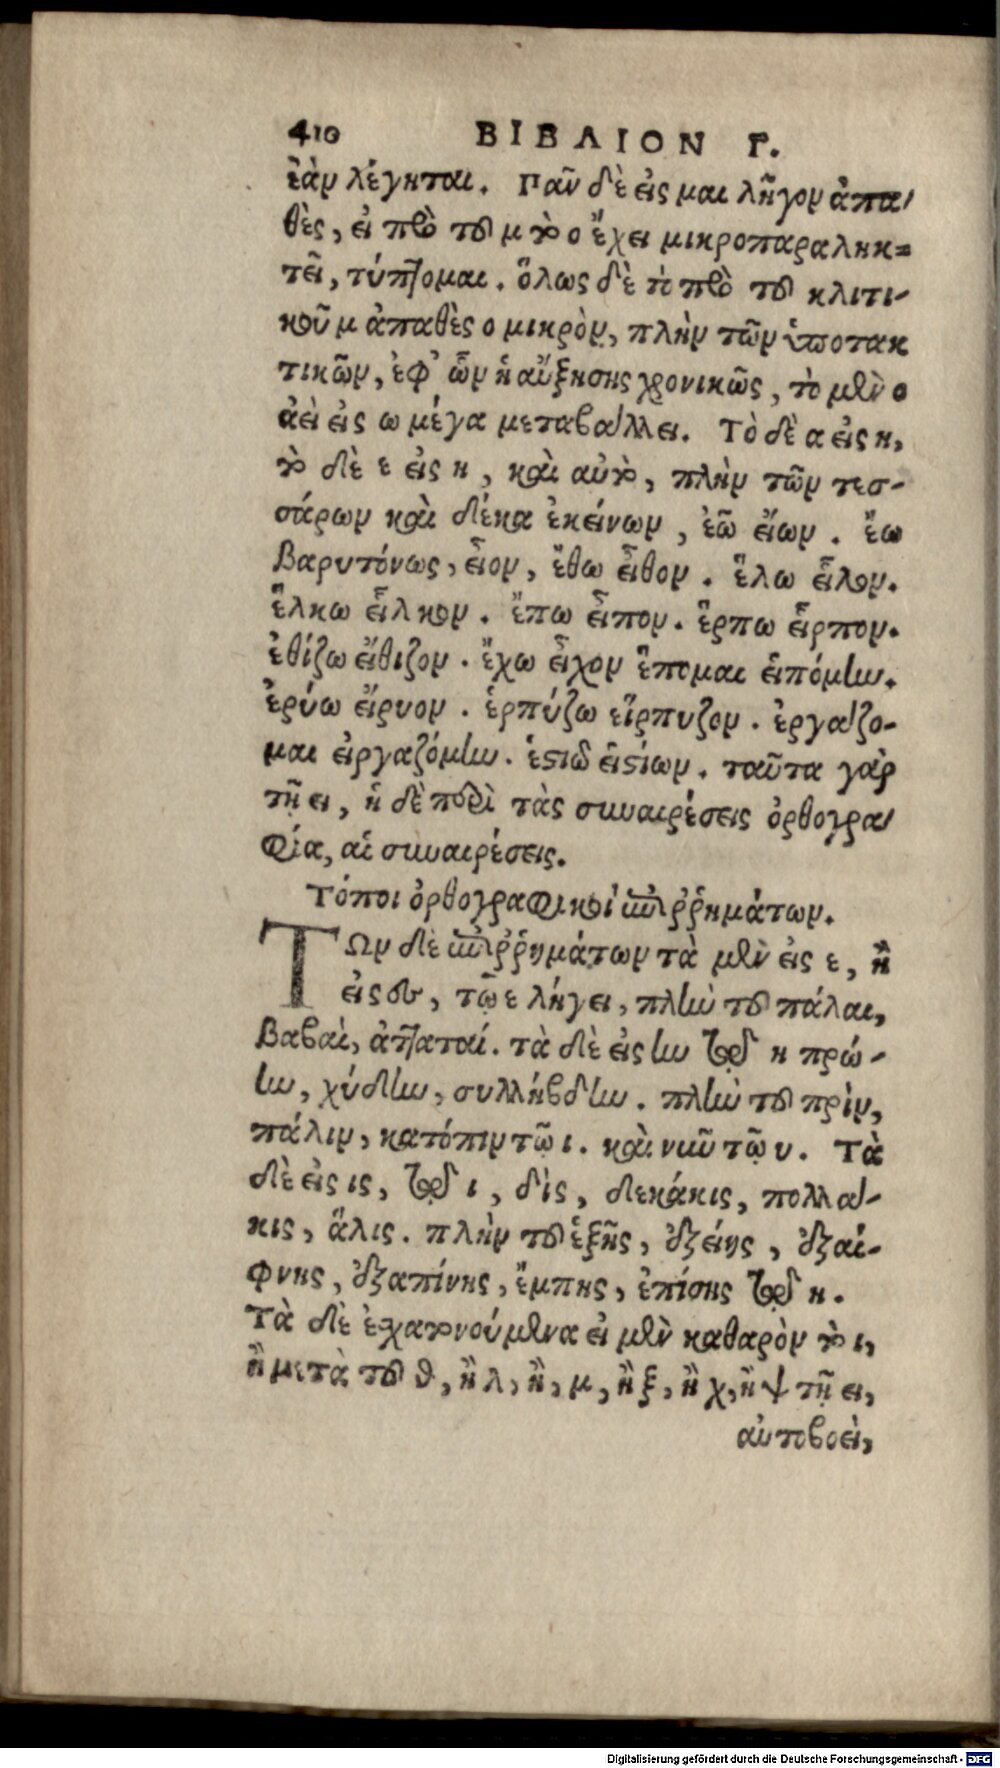 410 ΒΙΒΛΙΟΝ Γ.
ἐὰν λέγηται. Πᾶν δὲ εἰς μαι λῆγον ἀπα-
θὲς, εἰ πρὸ τοῦ μ τὸ ο ἔχει μικροπαραληκ-
τεῖ, τύπτομαι. ὅλως δὲ τὸ πρὸ τοῦ κλιτι-
κοῦ μ ἀπαθὲς ο μικρὸν, πλὴν τῶν ὑποτακ
τικῶν, ἐφ' ὧν ἡ αὔξησης χρονικῶς, τὸ μὲν ο
ἀεὶ εἰς ω μέγα μεταβάλλει. Τὸ δὲ α εἰς η,
τὸ δὲ ε εἰς η, καὶ αὐτὸ, πλὴν τῶν τεσ-
σάρων καὶ δέκα ἐκείνων, ἐῶ εἴων. ἕω
βαρυτόνως, εἷον, ἔθω εἶθον. ἕλω εἷλον.
ἕλκω εἷλκον. ἔπω εἶπον. ἕρπω εἷρπον.
ἐθίζω εἴθιζον. ἔχω εἶχον ἕπομαι εἱπόμην.
ἐρύω εἴρυον. ἑρπύζω εἵρπυζον. ἐργάζο-
μαι εἰργαζόμην. ἑστιῶ εἱστίων. ταῦτα γὰρ
τῇ ει, ἡ δὲ περὶ τὰς συναιρέσεις ὀρθογρα-
φία, αἱ συναιρέσεις.
Τόποι ὀρθογραφικοί ἐπιῤῥημάτων.
ΤΩν δὲ ἐπιῤῥημάτων τὰ μὲν εἰς ε, ἢ
εἰς ου, τῷ ε λήγει, πλὴν τοῦ πάλαι,
βαβαὶ, ἀτταταί. τὰ δὲ εἰς ην διὰ τοῦ η πρώ-
ην, χύδην, συλλήβδην. πλὴν τοῦ πρὶν,
πάλιν, κατόπιν τῷ ι. καὶ νῦν τῷ υ. Τὰ
δὲ εἰς ις, διὰ τοῦ ι, δὶς, δεκάκις, πολλά-
κις, ἅλις. πλὴν τοῦ ἑξῆς, ἐξείης, ἐξαί-
φνης, ἐξαπίνης, ἔμπης, ἐπίσης διὰ τοῦ η.
Τὰ δὲ ἐχατονούμενα εἰ μὲν καθαρὸν τὸ ι,
ἢ μετὰ τοῦ θ, ἢ λ, ἢ, μ, ἢ ξ, ἢ χ, ἢ ψ τῇ ει,
αὐτοβοεὶ,
Digitalisierung gefördert durch die Deutsche Forschungsgemeinschaft - DFG